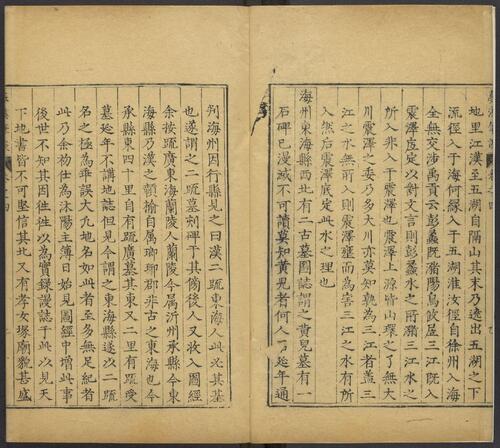 地里江漢至五湖自隔山其末乃遶出五湖之下
流徑入于海何緣入于五湖淮汝徑自徐州入海
全無交涉禹貢云彭蠡既豬陽鳥攸居三江既入
震澤底定以對文言則彭蠡水之所豬三江水之
所入非入于震澤也震澤上源皆山環之了無大
川震澤之委乃多大川亦莫知孰為三江者蓋三
江之水無所入則震澤壅而為害三江之水有所
入然後震澤底定此水之理也
海州東海縣西北有二古墓圖誌謂之黃兒墓有一
石碑已漫滅不可讀莫知黃兒者何人延年通
判海州因行縣見之曰漢二疏東海人此必其墓
也遂謂之二疏墓刻碑于其傍後人又收入圖經
余按疏廣東海蘭陵人蘭陵今屬沂州承縣今東
海縣乃漢之贛榆自屬琅琊郡非古之東海也今
承縣東四十里自有疏廣墓其東又二里有疏受
墓延年不講地誌但見今謂之東海縣遂以二疏
名之極為乖誤大凡地名如此者至多無足紀者
此乃余初仕為沭陽主簿日始見圖經中增此事
後世不知其因往往以為實錄謾誌于此以見天
下地書皆不可堅信其北又有孝女塚廟貌甚盛